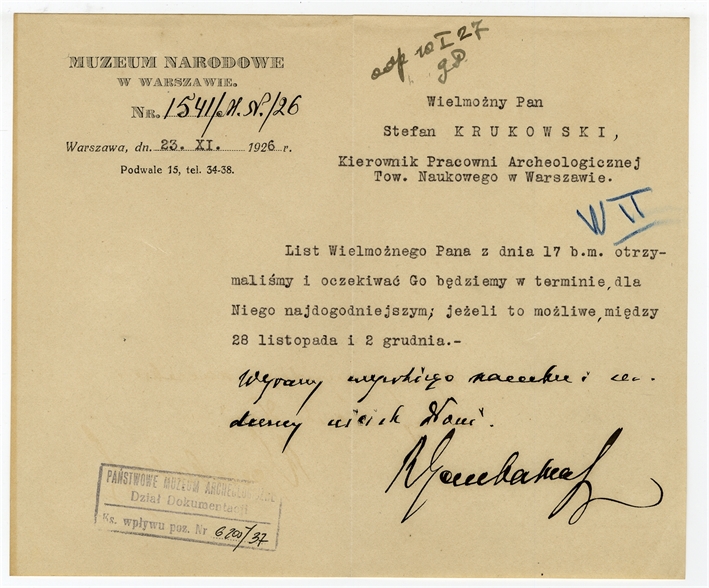 MUZEUM NARODOWE
W WARSZAWIE.
NR. 1541/M.N./26
Warszawa, dn. 23. XI. 1926 r.
Podwale 15, tel. 34-38.
odp 10 I 27
Wielmożny Pan
Stefan KRUKOWSKI,
Kierownik Pracowni Archeologicznej
Tow. Naukowego w Warszawie.
W II
List Wielmożnego Pana z dnia 17 b.m. otrzy-
maliśmy i oczekiwać Go będziemy w terminie, dla
Niego najdogodniejszym; jeżeli to możliwe, między
28 listopada i 2 grudnia.-
Wyrazy wysokiego szacunku i ser-
deczny uścisk dłoni.
PAŃSTWOWE MUZEUM ARCHEOLOGICZNE
Dział Dokumentacji
Ks. wpływu poz. Nr